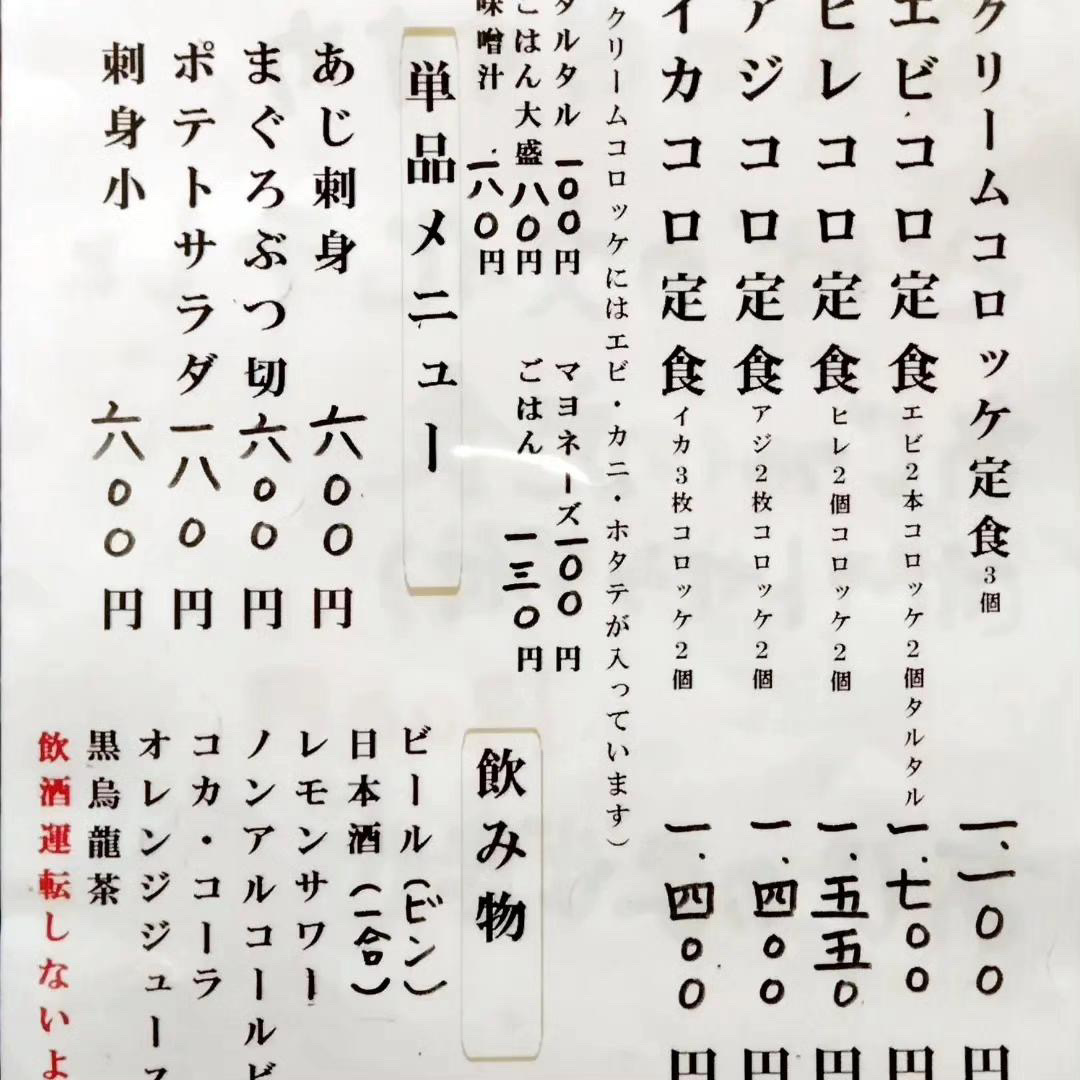 クリームコロッケ定食3個 一、一〇〇円
エビコロ定食 エビ2本コロッケ2個タルタル 一、七〇〇円
ヒレコロ定食 ヒレ2個コロッケ2個 一、五五〇円
アジコロ定食 アジ2枚コロッケ2個 一、四〇〇円
イカコロ定食 イカ3枚コロッケ2個 一、四〇〇円
クリームコロッケにはエビ・カニ・ホタテが入っています）
タルタル 一〇〇円
マヨネーズ 一〇〇円
ごはん大盛 八〇円
ごはん 一三〇円
味噌汁 一八〇円
単品メニュー
あじ刺身 六〇〇円
まぐろぶつ切 六〇〇円
ポテトサラダ 一八〇円
刺身小 六〇〇円
飲み物
ビール（ビン）
日本酒（一合）
レモンサワー
ノンアルコールビ
コカ・コーラ
オレンジジュース
黒烏龍茶
飲酒運転しないよ